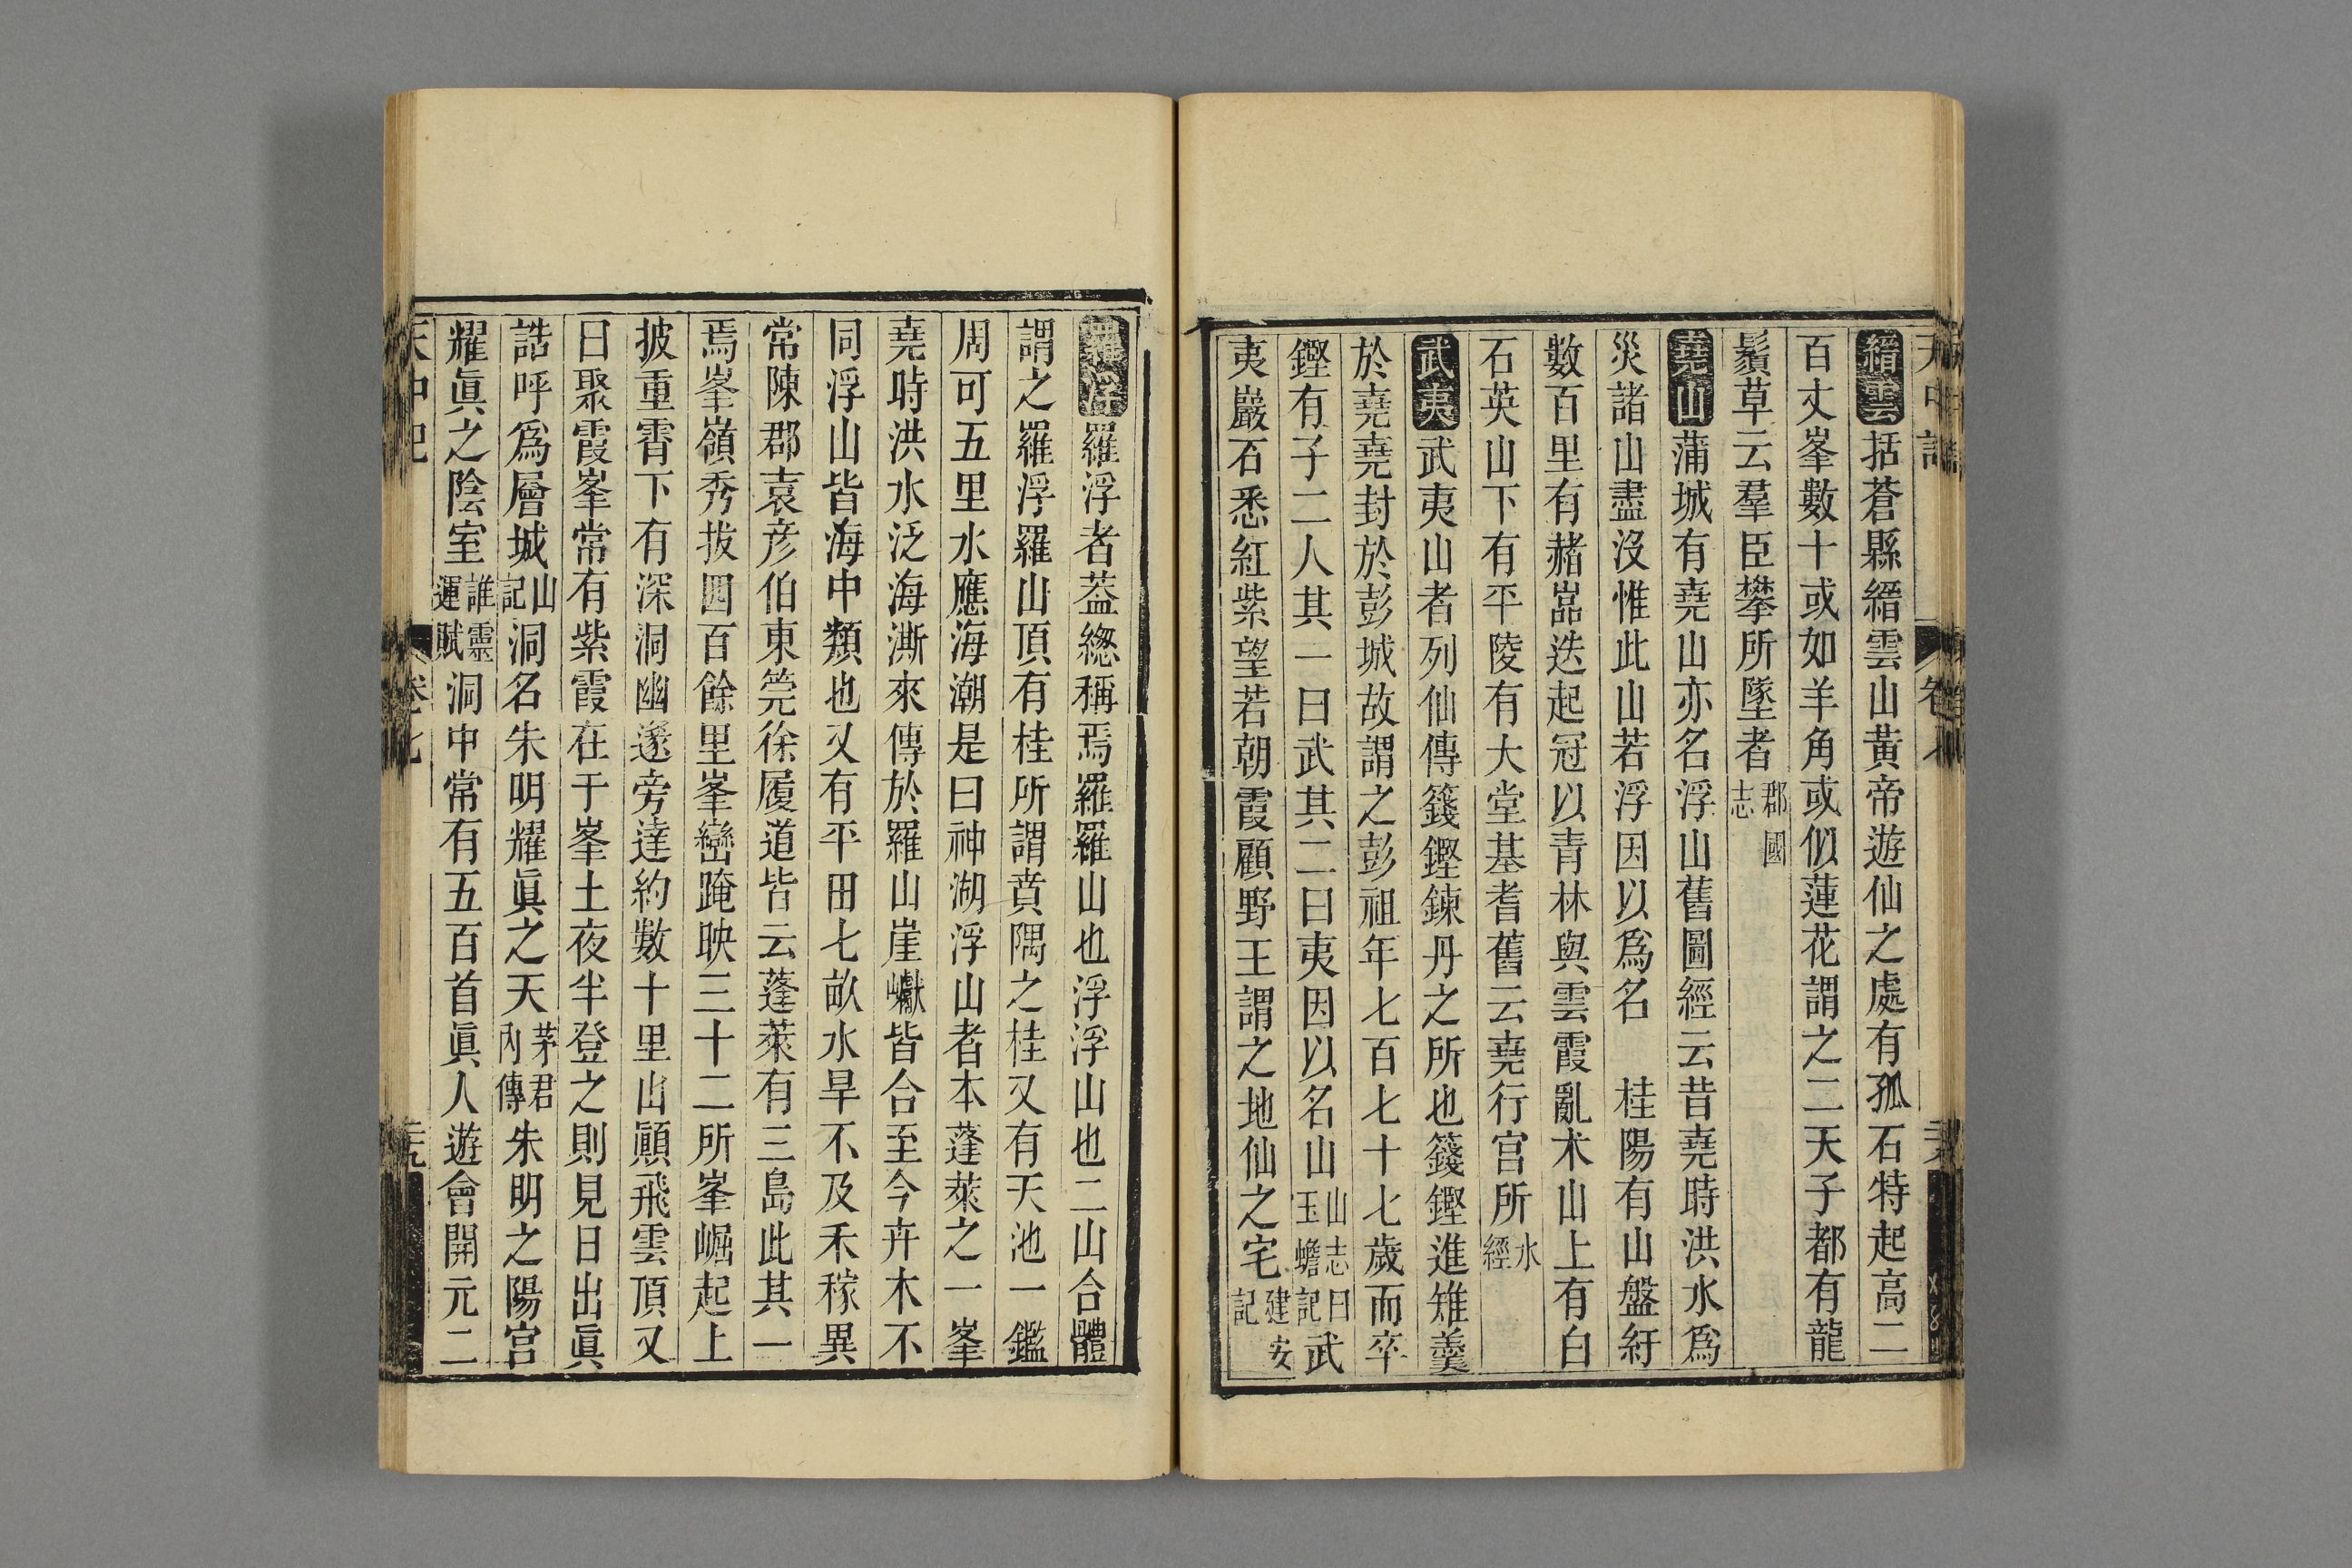 縉雲括蒼縣縉雲山黃帝遊仙之處有孤石特起高二
百丈峯數十或如羊角或似蓮花謂之二天子都有龍
鬚草云羣臣攀所墜者郡國志
堯山蒲城有堯山亦名浮山舊圖經云昔堯時洪水爲
災諸山盡沒惟此山若浮因以爲名　桂陽有山盤紆
數百里有赭嵓迭起冠以青林與雲霞亂木山上有白
石英山下有平陵有大堂基耆舊云堯行宮所水經
武夷武夷山者列仙傳籛鏗鍊丹之所也籛鏗進雉羹
於堯堯封於彭城故謂之彭祖年七百七十七歲而卒
鏗有子二人其一曰武其二曰夷因以名山山志曰玉蟾記武
夷巖石悉紅紫望若朝霞顧野王謂之地仙之宅建安記
羅浮羅浮者葢緫稱焉羅羅山也浮浮山也二山合體
謂之羅浮羅山頂有桂所謂賁隅之桂又有天池一鑑
周可五里水應海潮是曰神湖浮山者本蓬萊之一峯
堯時洪水泛海澌來傳於羅山崖巘皆合至今卉木不
同浮山皆海中類也又有平田七畝水旱不及禾稼異
常陳郡袁彦伯東筦徐履道皆云蓬萊有三島此其一
焉峯嶺秀拔四百餘里峯巒晻映三十二所峯崛起上
披重霄下有深洞幽邃旁達約數十里山巓飛雲頂又
日聚霞峯常有紫霞在于峯土夜半登之則見日出眞
誥呼爲層城山記洞名朱明耀眞之天茅君內傳朱明之陽宮
耀眞之陰室誰靈運賦洞中常有五百首眞人遊會開元二
天中記　卷七